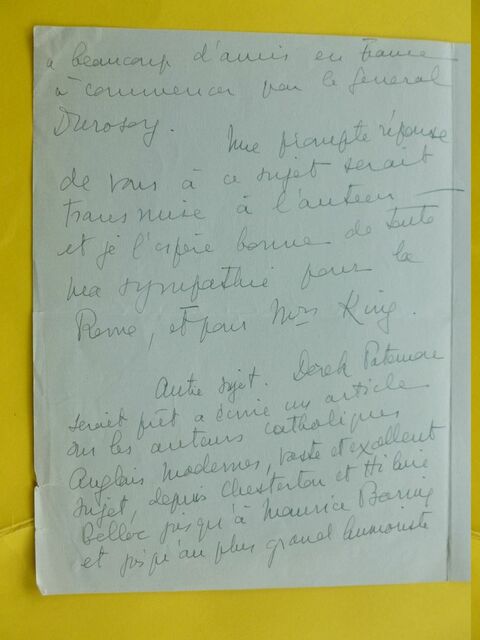 a beaucoup d'amis en France
à commencer par le Général
Durosoy. Une prompte réponse
de vous à ce sujet serait
transmise à l'auteur —
et je l'espère bonne de toute
ma sympathie pour la
Revue, et pour Mrs King.
Autre sujet. Derek Patmore
serait prêt à écrire un article
sur les auteurs catholiques
Anglais modernes, vaste et excellent
sujet, depuis Chesterton et Hilaire
Belloc jusqu'à Maurice Baring
et jusqu'au plus grand humoriste